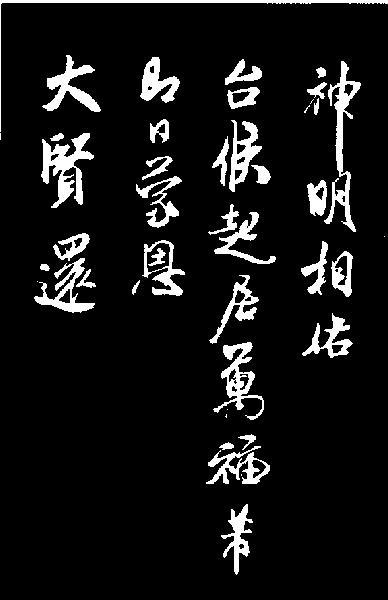 神明相佑
台候起居萬福芾
即日蒙恩
大賢還